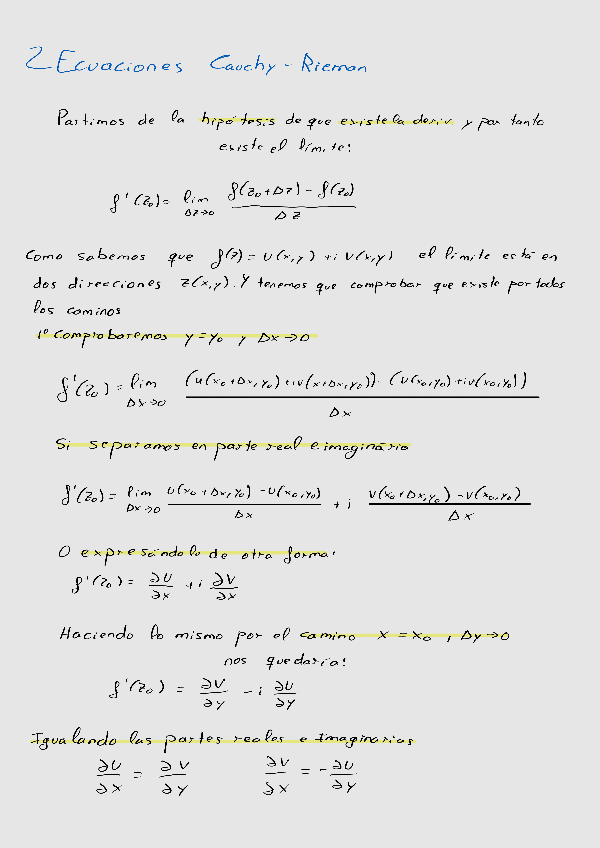 2 Ecuaciones Cauchy - Rieman
Partimos de la hipótesis de que existe la deriv y por tanto
existe el límite:
f'(z₀) = lim Δz→0 (f(z₀+Δz) - f(z₀)) / Δz
Como sabemos que f(z) = u(x,y) + i v(x,y) el límite está en
dos direcciones z(x,y). Y tenemos que comprobar que existe por todos
los caminos
1º Comprobaremos y = y₀ y Δx → 0
f'(z₀) = lim Δx→0 ((u(x₀+Δx, y₀) + iv(x+Δx, y₀)) - (u(x₀,y₀) + iv(x₀,y₀))) / Δx
Si separamos en parte real e imaginário
f'(z₀) = lim Δx→0 (u(x₀+Δx, y₀) - u(x₀,y₀)) / Δx + i (v(x₀+Δx, y₀) - v(x₀,y₀)) / Δx
O expresándolo de otra forma:
f'(z₀) = ∂u/∂x + i ∂v/∂x
Haciendo lo mismo por el camino x = x₀, Δy → 0
nos quedaria:
f'(z₀) = ∂v/∂y - i ∂u/∂y
Igualando las partes reales e Imaginarias
∂u/∂x = ∂v/∂y ∂v/∂x = -∂u/∂y